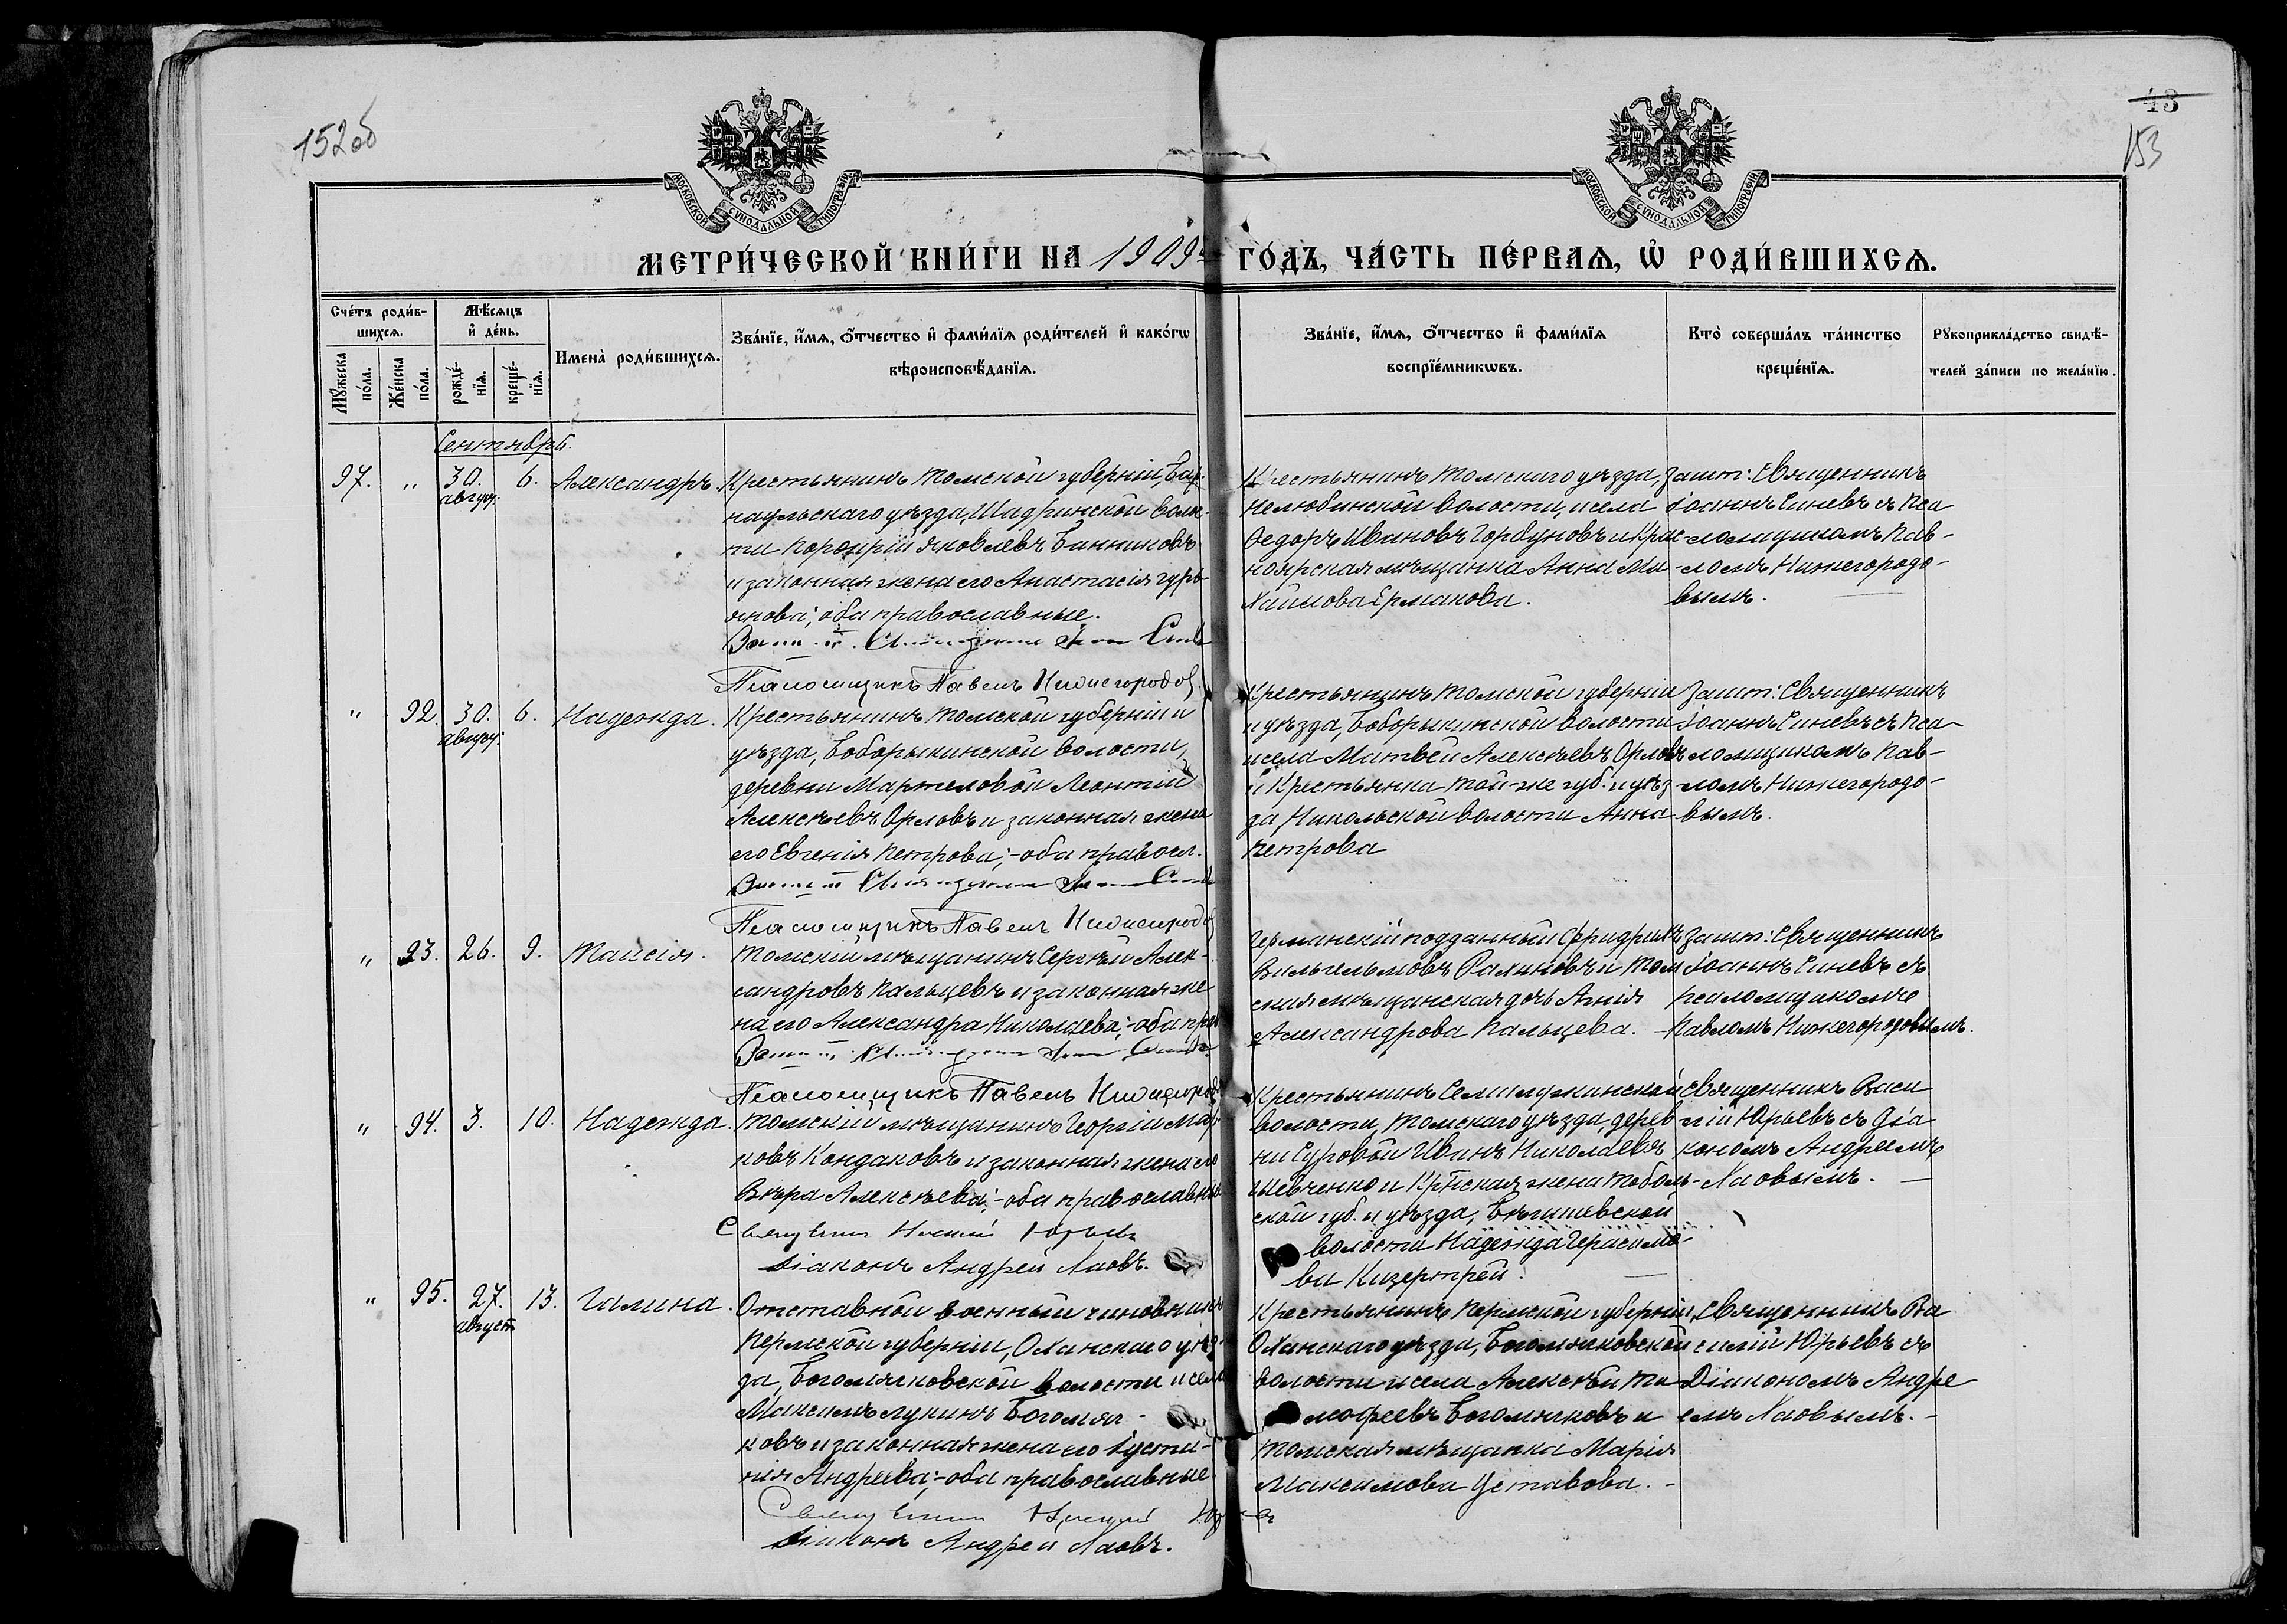 152об
43
153
МОСКОВСКОЙ СѴНОДАЛЬНОЙ ТИПОГРАФІИ
МОСКОВСКОЙ СѴНОДАЛЬНОЙ ТИПОГРАФІИ
МЕТРИ́ЧЕСКОЙ КНИ́ГИ НА 1909й ГО́ДЪ, ЧА́СТЬ ПЕ́РВАѦ, Ѡ҆ РОДИ́ВШИХСѦ.
Сче́тъ роди́в-
шихсѧ.
Мꙋ́жеска по́ла.
Же́нска по́ла.
Мѣ́сѧцъ
и҆ де́нь.
рожде́-нїѧ.
креще́-нїѧ.
Имена̀ роди́вшихсѧ.
Зва́нїе, и҆́мѧ, ѻ҆́тчество и҆ фами́лїѧ роди́телей и҆ како́гѡ
вѣроисповѣ́данїѧ.
Зва́нїе, и҆́мѧ, ѻ҆́тчество и҆ фами́лїѧ
воспрїе́мникѡвъ.
Кто̀ соверша́лъ та́инство
креще́нїѧ.
Рꙋкоприкла́дство свидѣ́-
телей за́писи по жела́нїю.
Сентябрь.
97. " 30. август. 6. Александръ.
Крестьянинъ Томской губерніи, Бар-
наульскаго уѣзда, Шадринской волос-
ти Порфирій Яковлевъ Банниковъ
и законная жена его Анастасія Гурь-
янова; оба православные.
Псаломщикъ Павелъ Нижегородов
Крестьянинъ Томскаго уѣзда,
Нелюбинской волости, и села
Ѳедоръ Ивановъ Горбуновъ и Крас-
ноярская мѣщанка Анна Ми-
хаилова Ермакова.
Зашт: Священникъ
Іоаннъ Синевъ съ Пса
ломщикомъ Пав-
ломъ Нижегородо-
вымъ.
" 92. 30. август. 6. Надежда.
Крестьянинъ Томской губерніи и
уѣзда, Боборыкинской волости,
деревни Мартеловой Леонтій
Алексѣевъ Орловъ и законная жена
его Евгенія Петрова;- оба правосл.
Псаломщикъ Павелъ Нижегородов
Крестьянинъ Томской губерніи
и уѣзда, Боборыкинской волости
и села Матвей Алексѣевъ Орловъ
и Крестьянка той-же губ. и уѣз-
да Никольской волости Анна
Петрова
Зашт: Священникъ
Іоаннъ Синевъ съ Пса
ломщикомъ Пав-
ломъ Нижегородо-
вымъ.
" 93. 26. 9. Таисія.
Томскій мѣщанинъ Сергѣй Алек-
сандровъ Пальцевъ и законная же
на его Александра Николаева;- оба прав
Псаломщикъ Павелъ Нижегород
Германскій подданный Фридрихъ
Вильгельмовъ и Том
ская мѣщанская дочь Агнія
Александрова Пальцева.
Зашт: Священникъ
Іоаннъ Синевъ съ
псаломщикомъ
Павломъ Нижегородовымъ.
" 94. 3. 10. Надежда.
Томскій мѣщанинъ Георгій Мар-
ковъ Кондаковъ и законная жена его
Вѣра Алексѣева;- оба православные
діаконъ Андрей Лаовъ.
Крестьянинъ Семилужинской
волости, Томскаго уѣзда, дерев
ни Суровой Иванъ Николаевъ
Шевченко и Кр-нская жена Тоболь-
ской губ. и уѣзда,
волости Надежда Герасимо-
ва
Священникъ Васи
лій Юрьевъ съ Діа
кономъ Андреемъ
Лаовымъ.
" 95. 27. август 13. Галина.
Отставной военный чиновникъ
Пермской губерніи, Оханскаго уѣз-
да, Богомягковской волости и села
Максимъ Лукинъ Богомяг-
ковъ и законная жена его Іусти-
нія Андреева;- оба православные
діаконъ Андрей Лаовъ.
Крестьянинъ Пермской губерніи,
Оханскаго уѣзда, Богомягковской
волости и села Алексѣй Ти
мофеевъ Богомягковъ и
Томская мѣщанка Марія
Максимова Уставова.
Священникъ Ва
силій Юрьевъ съ
Діакономъ Андре
емъ Лаовымъ.